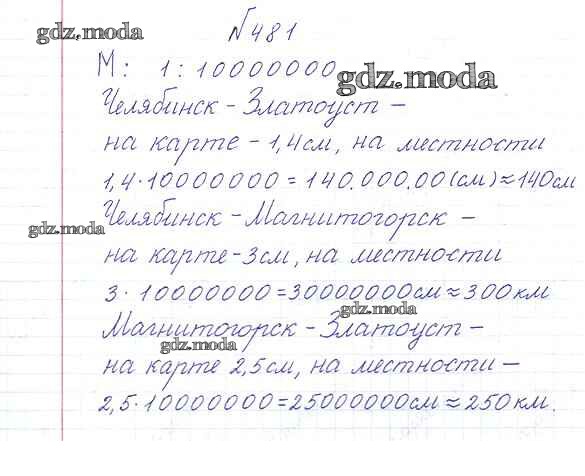 №481
gdz.moda
М: 1:10000000
gdz.moda
Челябинск - Златоуст -
на карте - 1,4см, на местности
1,4·10000000=140.000.00(см)≈140см
Челябинск-Магнитогорск -
gdz.moda
на карте-3см, на местности
3·10000000=30000000см≈300км
gdz.moda
Магнитогорск-Златоуст-
gdz.moda
на карте 2,5см, на местности -
2,5·10000000=25000000см≈250км.